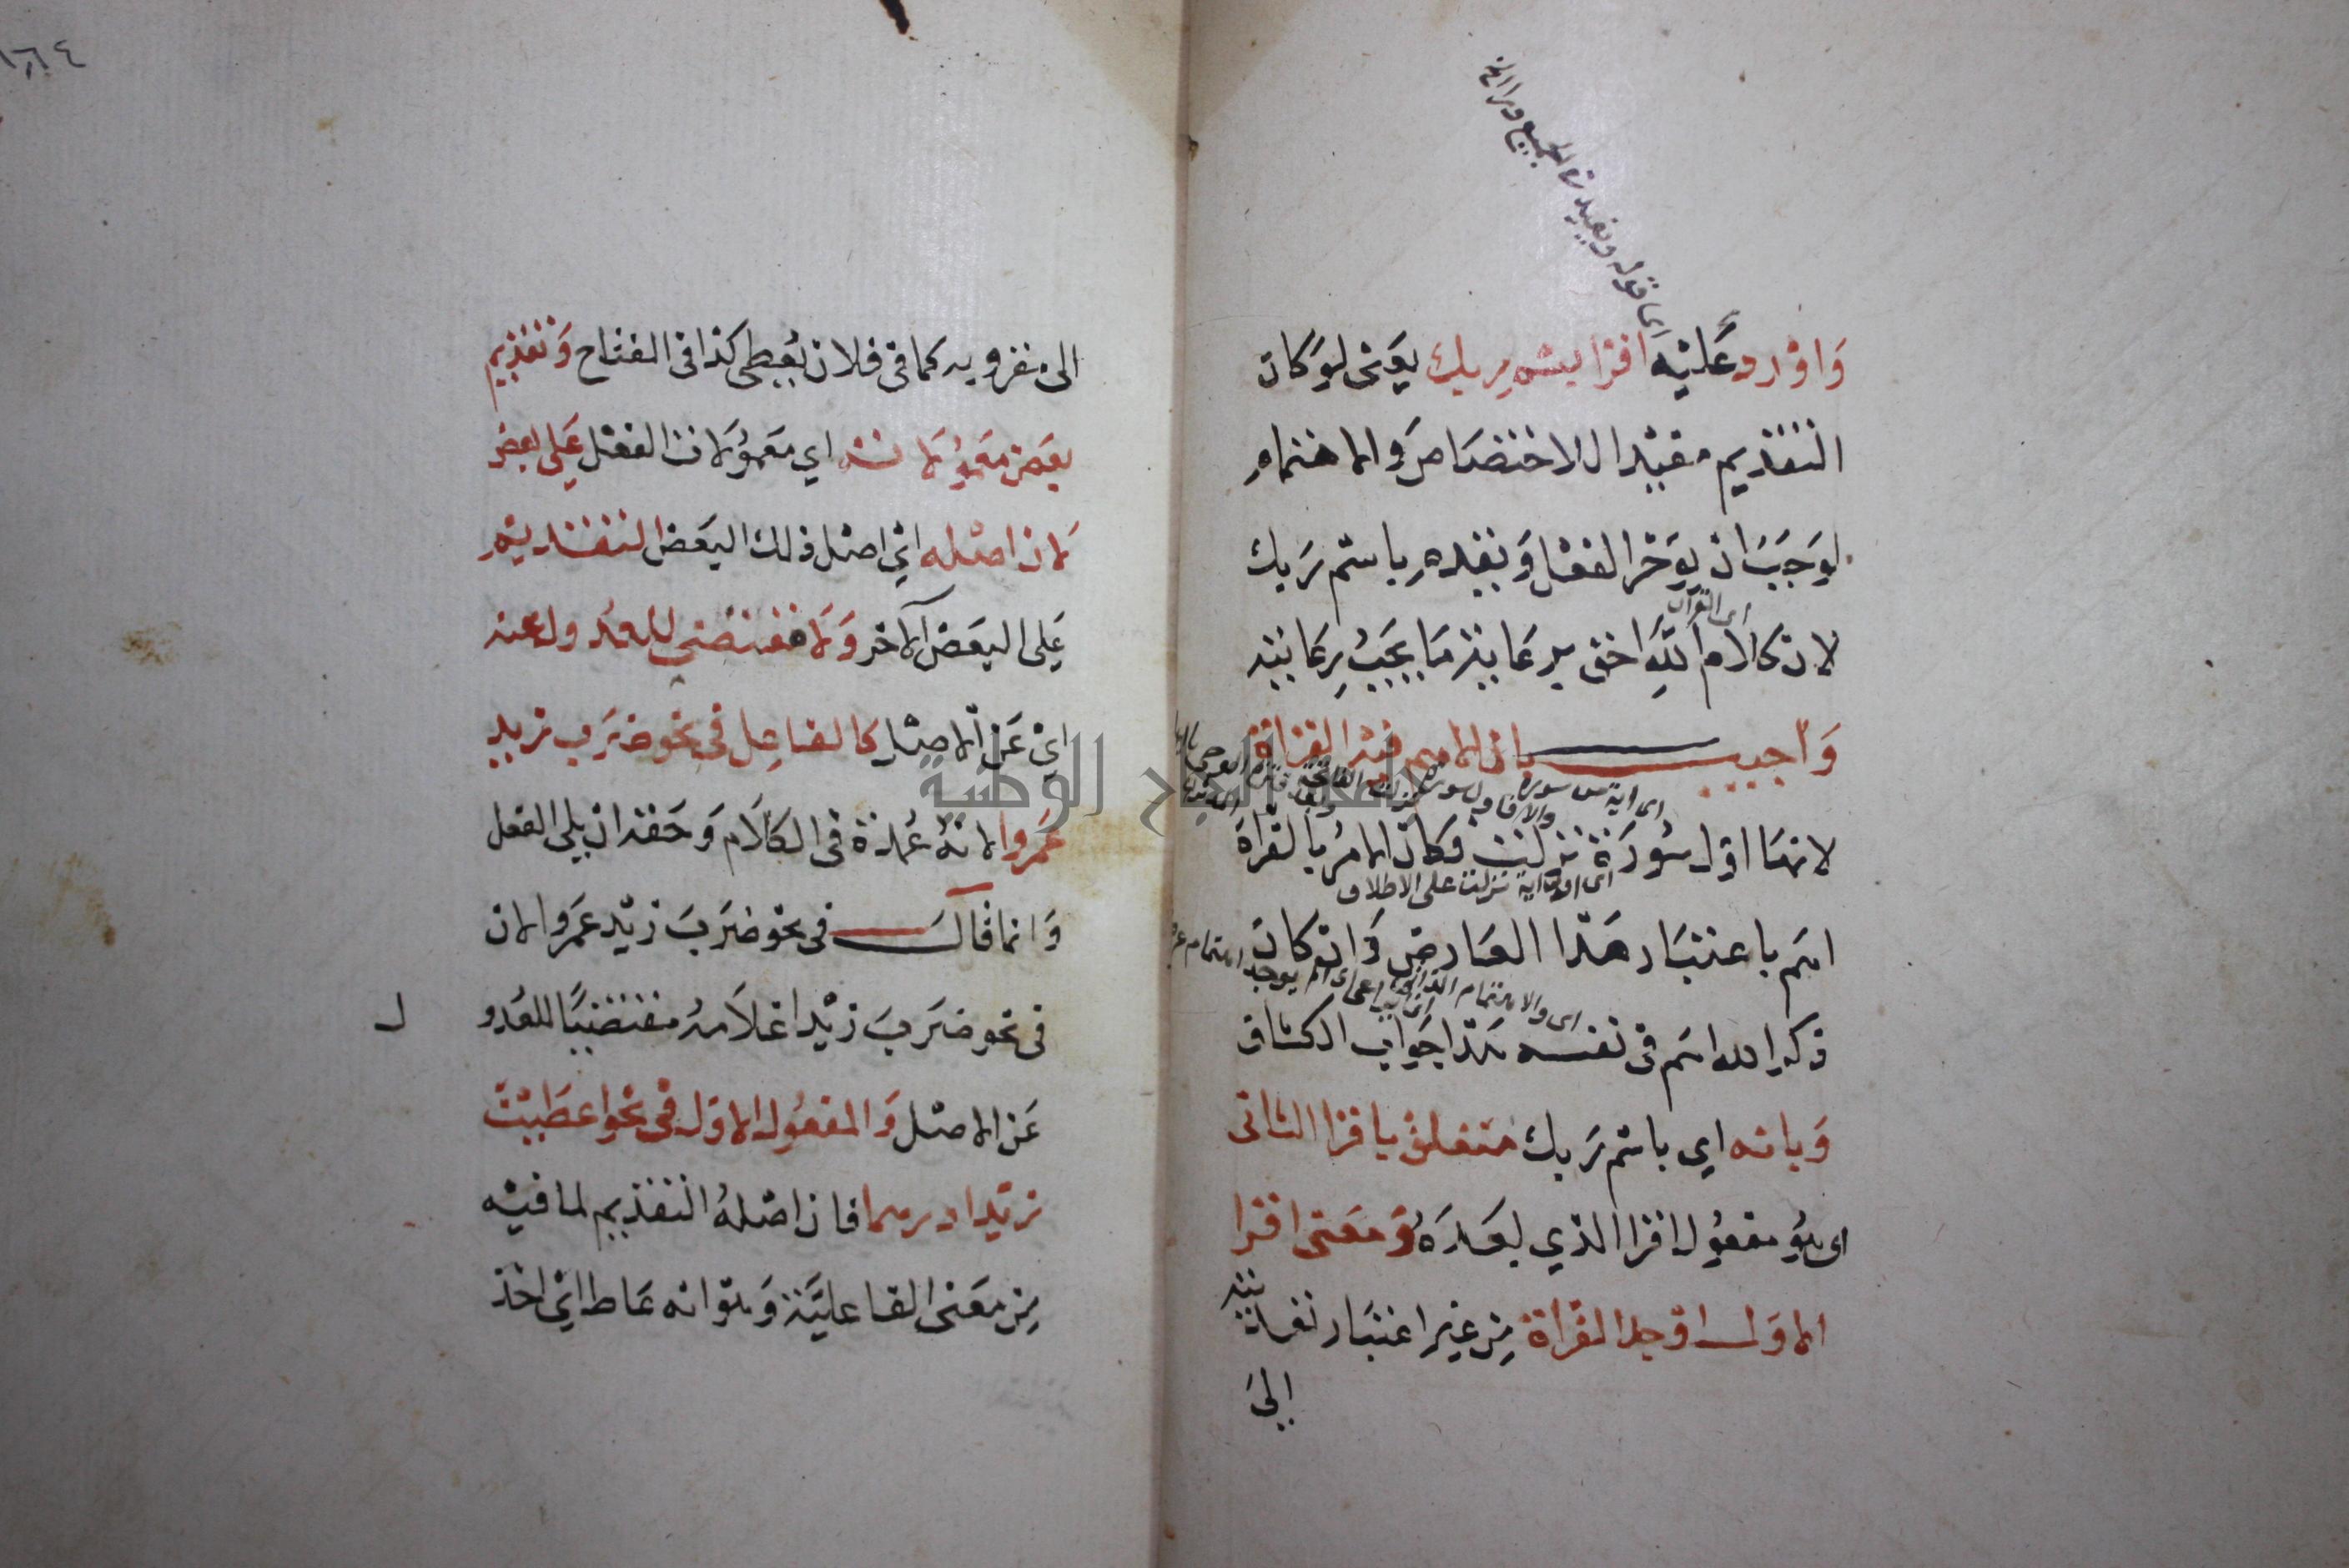 اى قوله ويفيد فى الجميع وراء الخ
وَاوْرد عَليْه اقرا بِسْم ربك يَعنى لوكان
التقديم مفيدا للاختصاص وَالاهتمام
لوَجَبَ ان يوَخر الفعل وَيقدم باسْم رَبك
اى القرآن
لان كلام اللهِ احق برعاية مَا يجَبُ رِعَايته
وَاجيب بان الاهم فيه القراة
اى اية من سورة
لانهَا اول سُورَة نزلت فكان الامرُ بالقراة
اى اول اية نزلت على الاطلاق
اهَم باعتبَار هَذا العَارض وَان كان
اى والاهتمام الذاتى
ذكر الله اهَم فى نفسه هَذا جَوَاب الكشاف
وَبانه اى باسْم رَبك متعلق باقرا الثانى
اى هُو مفعُول اقرا الذي بعَدَهُ وَمعَنى اقرا
الاوَل اوجد القراة مِن غير اعتبَار تعديته
الىَ
١٦٤
الى مقرو به كما فى فلان يُعطى كذا فى المفتاح وَتقديم
بعَض معمُولاته اي مَعمُولات الفعْل عَلى بعض
لان اصْله ائ اصْل ذلك البعَض التقديْم
عَلى البعَض الآخر وَلا مقتضى للعدُول عنه
ائ عَن الاصْل كالفاعِل فى نحو ضرَب زيد
عَمروا لانهُ عُمدة فى الكَلَام وَحَقه ان يلى الفعل
وَانما قال فى نحو ضرَبَ زيْد عَمروا لان
فى نحو ضرَبَ زيْدا غلَامهُ مقتضيًا للعُدو
ل
عَن الاصْل وَالمفعُول الاوَل فى نحو اعطَيْت
زيْدا درهما فان اصْلهُ التقديم لما فيْه
مِن معَنى الفاعليَّة وَهوَ انه عَاط ائ اخذ
جامعة النجاح الوطنية